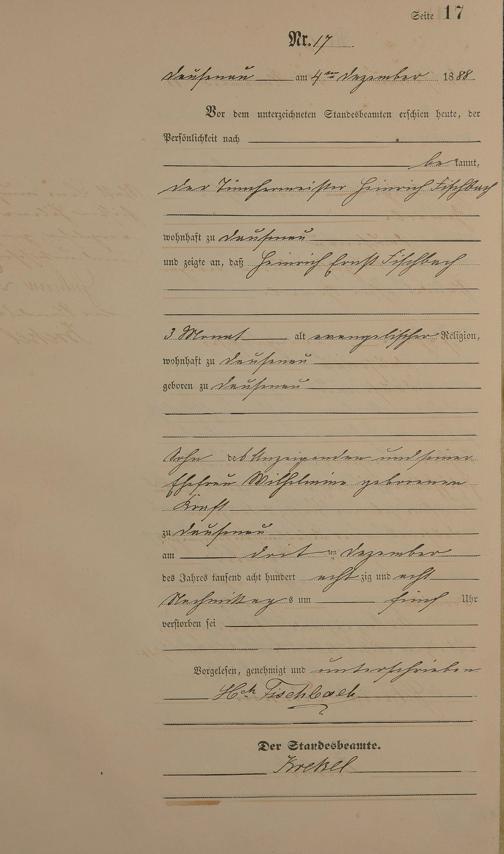 Seite 17
Nr. 17
Dausenau am 4ten Dezember 1888
Vor dem unterzeichneten Standesbeamten erschien heute, der
Persönlichkeit nach
be kannt,
der Tünchermeister Heinrich Fischbach
wohnhaft zu Dausenau
und zeigte an, daß Heinrich Ernst Fischbach
3 Monat alt evangelischer Religion,
wohnhaft zu Dausenau
geboren zu Dausenau
Sohn des Anzeigenden und seiner
Ehefrau Wilhelmine geborenen
Kraft
zu Dausenau
am dritten Dezember
des Jahres tausend acht hundert acht zig und acht
Nachmittags um fünf Uhr
verstorben sei
Vorgelesen, genehmigt und unterschrieben
Hch Fischbach
Der Standesbeamte.
Krekel